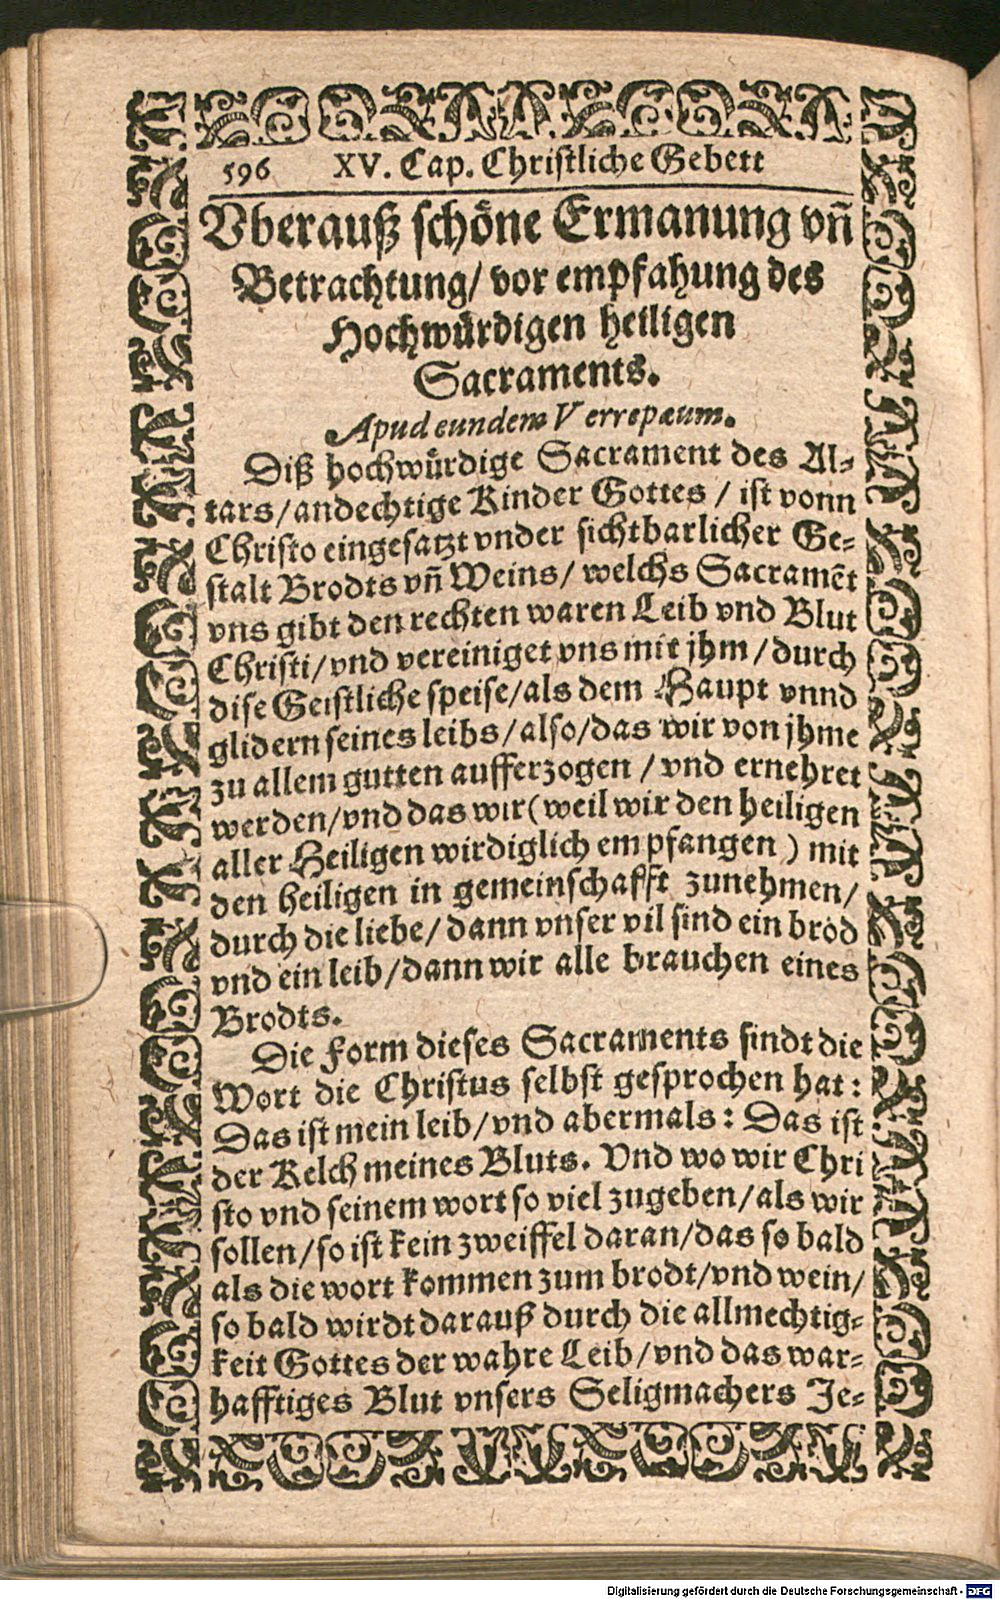 596 XV. Cap. Christliche Gebett
Vberauß schöne Ermanung vñ
Betrachtung/ vor empfahung des
Hochwürdigen heiligen
Sacraments.
Apud eundem Verrepæum.
Diß hochwürdige Sacrament des Al-
tars/andechtige Kinder Gottes / ist vonn
Christo eingesatzt vnder sichtbarlicher Ge-
stalt Brodts vñ Weins/ welchs Sacramẽt
vns gibt den rechten waren Leib vnd Blut
Christi/vnd vereiniget vns mit jhm/durch
dise Geistliche speise/als dem Haupt vnnd
glidern seines leibs/also/das wir von jhme
zu allem gutten aufferzogen / vnd ernehret
werden/vnd das wir (weil wir den heiligen
aller Heiligen wirdiglich empfangen ) mit
den heiligen in gemeinschafft zunehmen/
durch die liebe/ dann vnser vil sind ein brod
vnd ein leib/dann wir alle brauchen eines
Brodts.
Die Form dieses Sacraments sindt die
Wort die Christus selbst gesprochen hat:
Das ist mein leib/vnd abermals: Das ist
der Kelch meines Bluts. Vnd wo wir Chri
sto vnd seinem wort so viel zugeben/als wir
sollen/so ist kein zweiffel daran/das so bald
als die wort kommen zum brodt/vnd wein/
so bald wirdt darauß durch die allmechtig-
keit Gottes der wahre Leib/vnd das war-
hafftiges Blut vnsers Seligmachers Je-
Digitalisierung gefördert durch die Deutsche Forschungsgemeinschaft - DFG